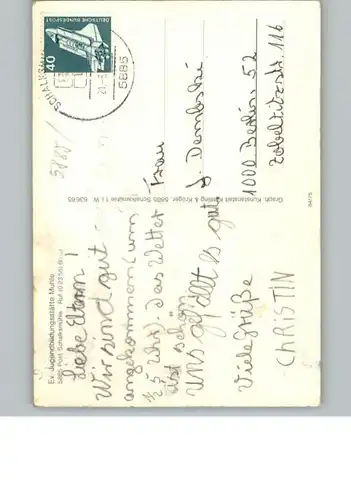 Ev. Jugendbildungsstätte Mühle
5885 Post Schalksmühle · Ruf (0 23 55)
Liebe Eltern!
Wir sind gut
angekommen (um
½ 5 Uhr). Das Wetter
ist schön
uns gefällt es gut
Viele Grüße
CHRISTIN
Graph. Kunstanstalt Kissling & Krüger, 5885 Schalksmühle 1 i. W.
DEUTSCHE BUNDESPOST
40
5885
5880/
Frau
J. Dembski
1000 Berlin 52
116